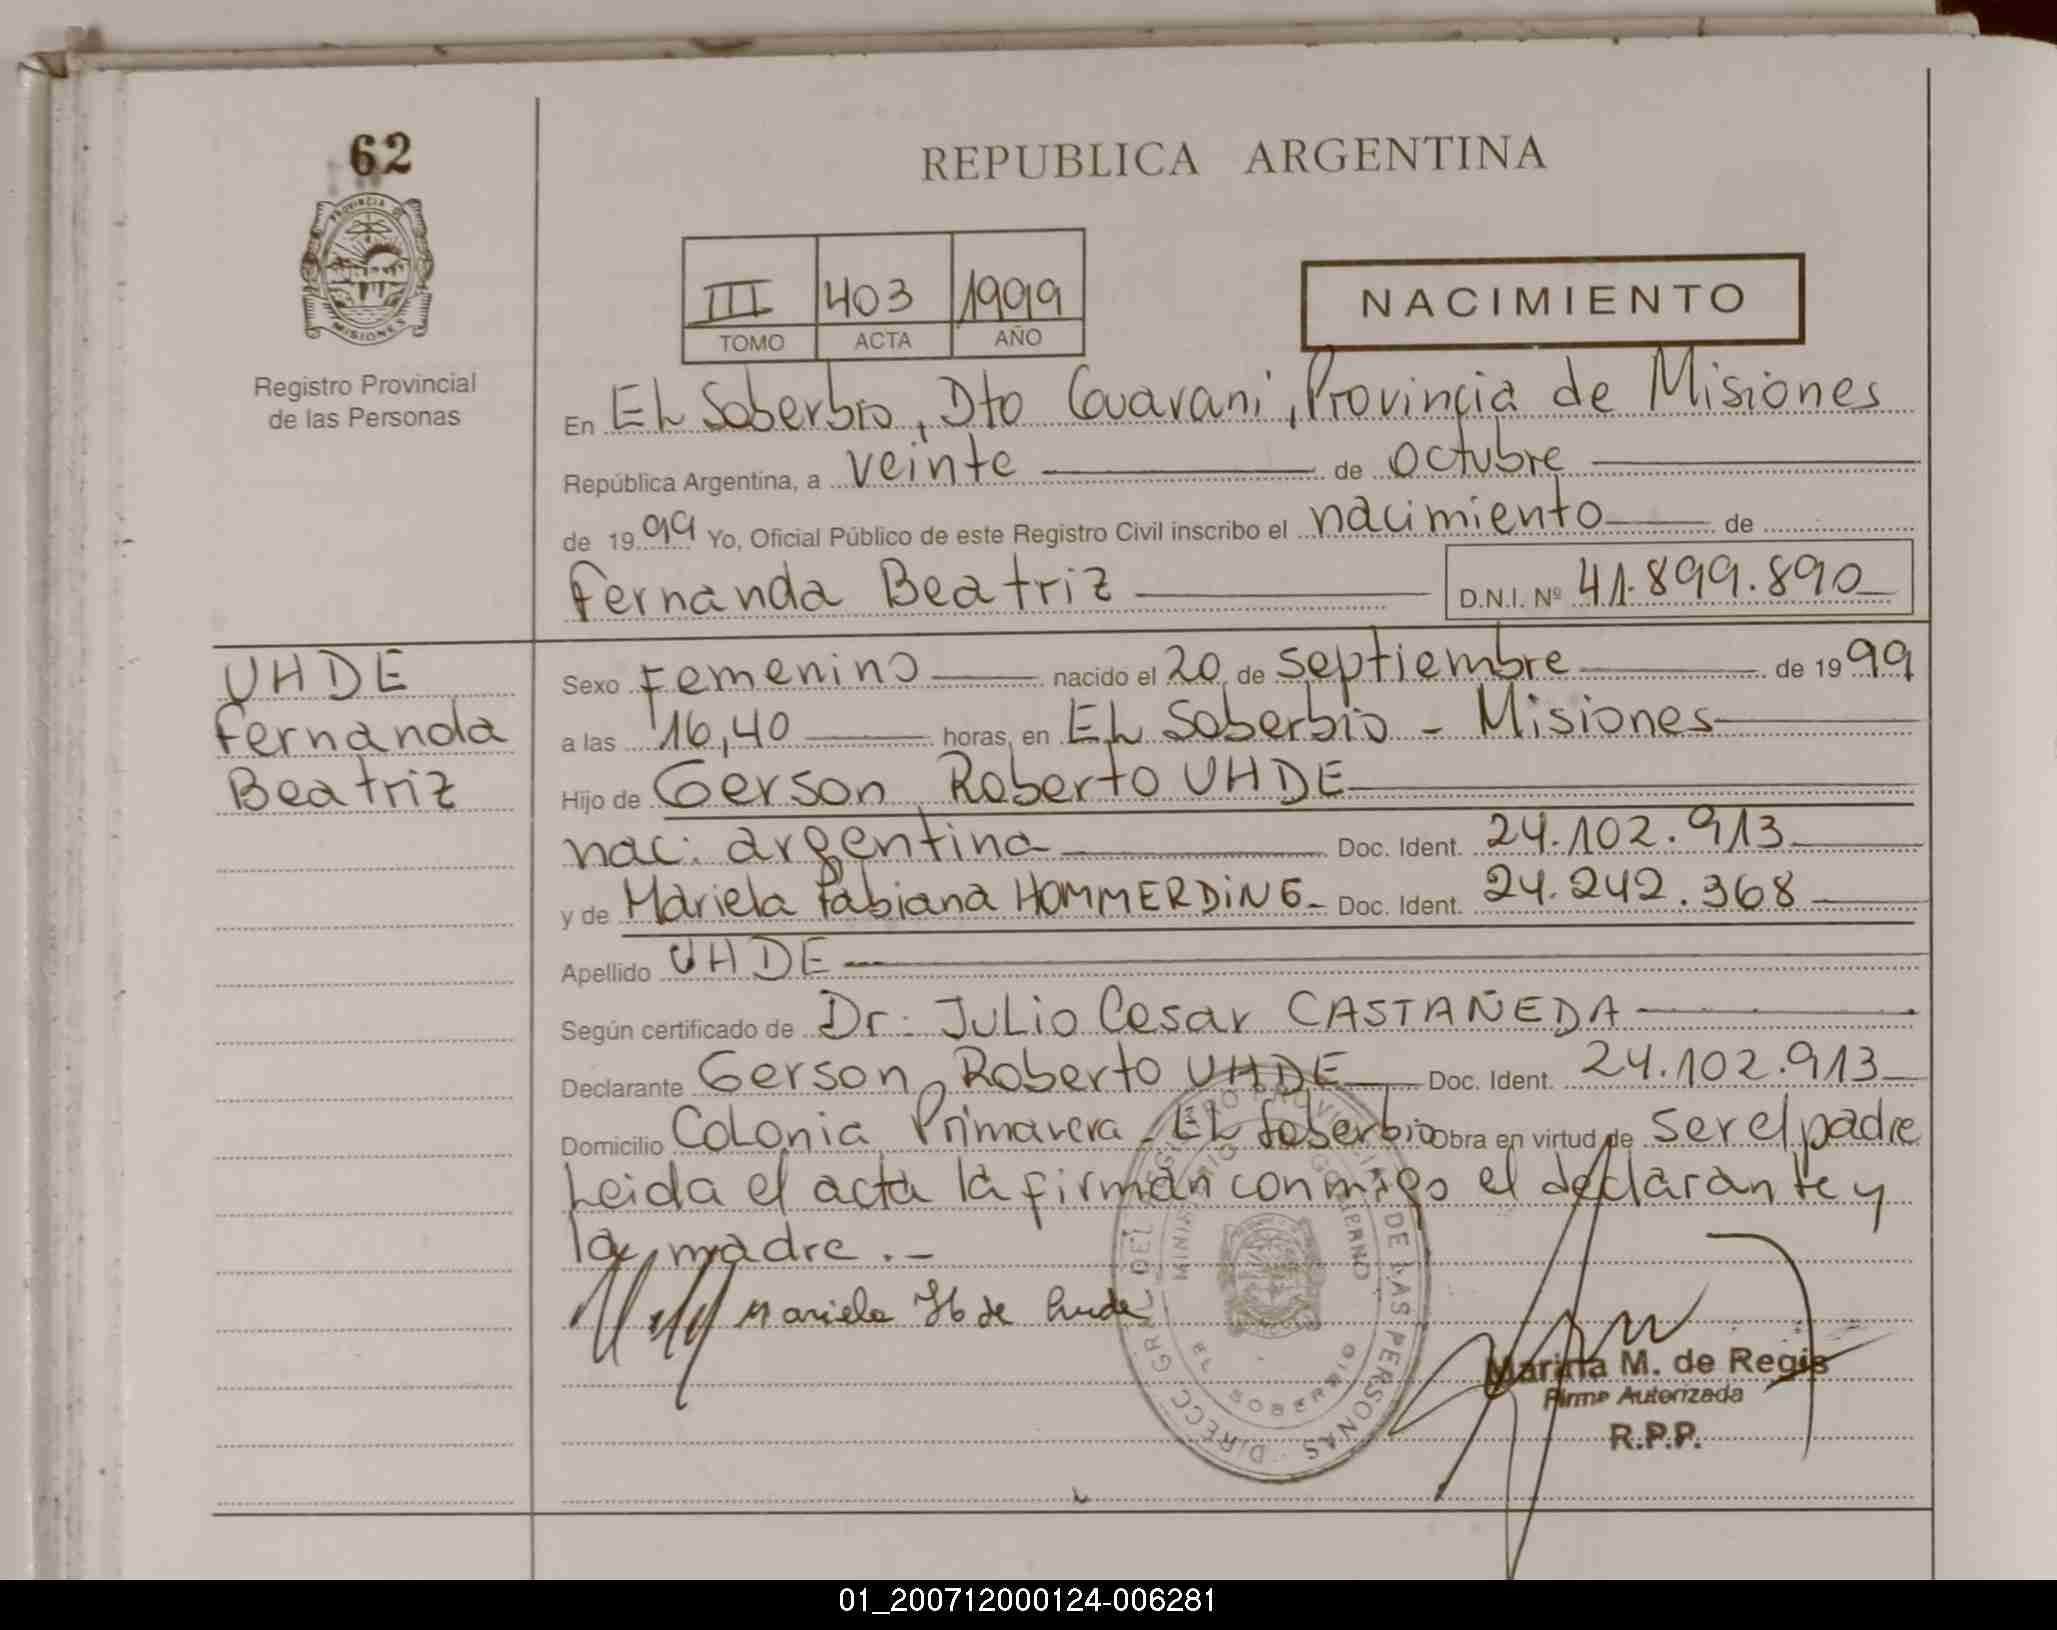 62
REPUBLICA ARGENTINA
PROVINCIA DE
MISIONES
Registro Provincial
de las Personas
III 403 1999
TOMO ACTA AÑO
NACIMIENTO
En EL Soberbio, Dto Guarani, Provincia de Misiones
República Argentina, a veinte de octubre
de 1999 Yo, Oficial Público de este Registro Civil inscribo el nacimiento de
Fernanda Beatriz D.N.I. Nº 41.899.890
UHDE
Fernanda
Beatriz
Sexo Femenino nacido el 20 de septiembre de 1999
a las 16,40 horas, en EL Soberbio - Misiones
Hijo de Gerson Roberto UHDE
nac: argentina Doc. Ident. 24.102.913
y de Mariela Fabiana HOMMERDING- Doc. Ident. 24.242.368
Apellido UHDE
Según certificado de Dr: Julio Cesar CASTAÑEDA
Declarante Gerson Roberto UHDE Doc. Ident. 24.102.913
Domicilio Colonia Primavera - EL Soberbio Obra en virtud de ser el padre
Leida el acta la firman conmigo el declarante y
la madre.-
Mariela H de
DIRECC. GRAL. DEL REGISTRO PROVINCIAL DE LAS PERSONAS
MINISTERIO GOBIERNO
EL SOBERBIO
Marina M. de Regis
Firma Autorizada
R.P.P.
01_200712000124-006281